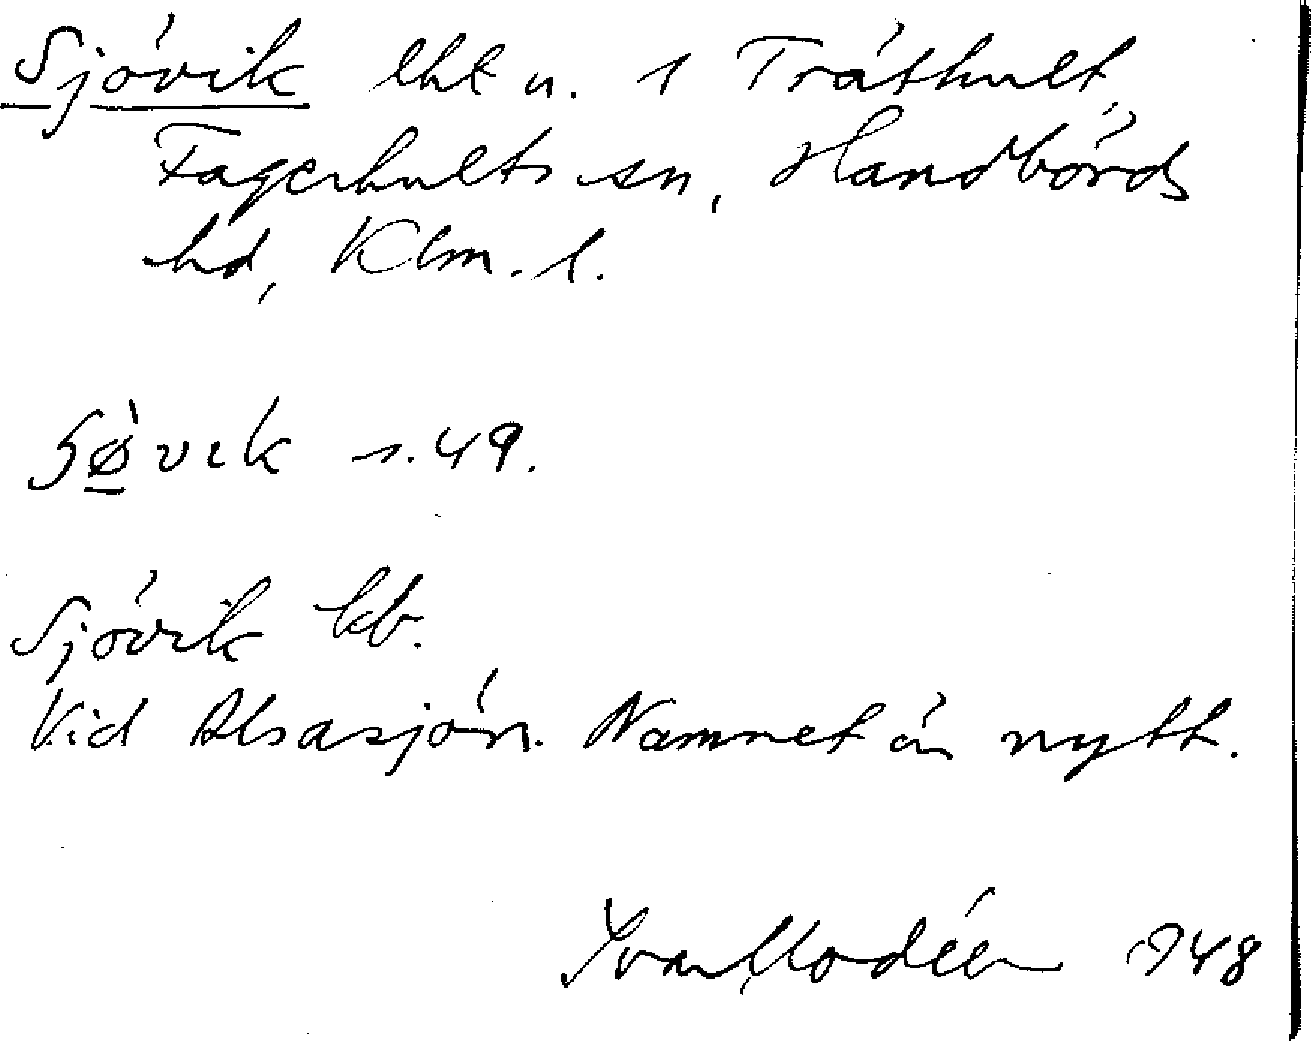 Sjövik lht u. 1 Tråthult,
Fagerhults sn, Handbörds
hd, Klm. l.
sø̀vik s. 49.
Sjövik kb.
Vid Alsasjön. Namnet är nytt.
Ivar Modéer 1948